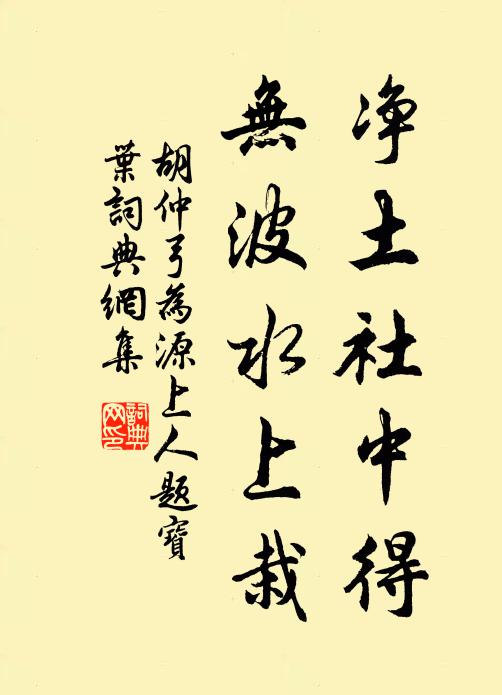 净土社中得
無波水上栽
胡仲弓為源上人題寶
葉詞典網集
詞典
网印